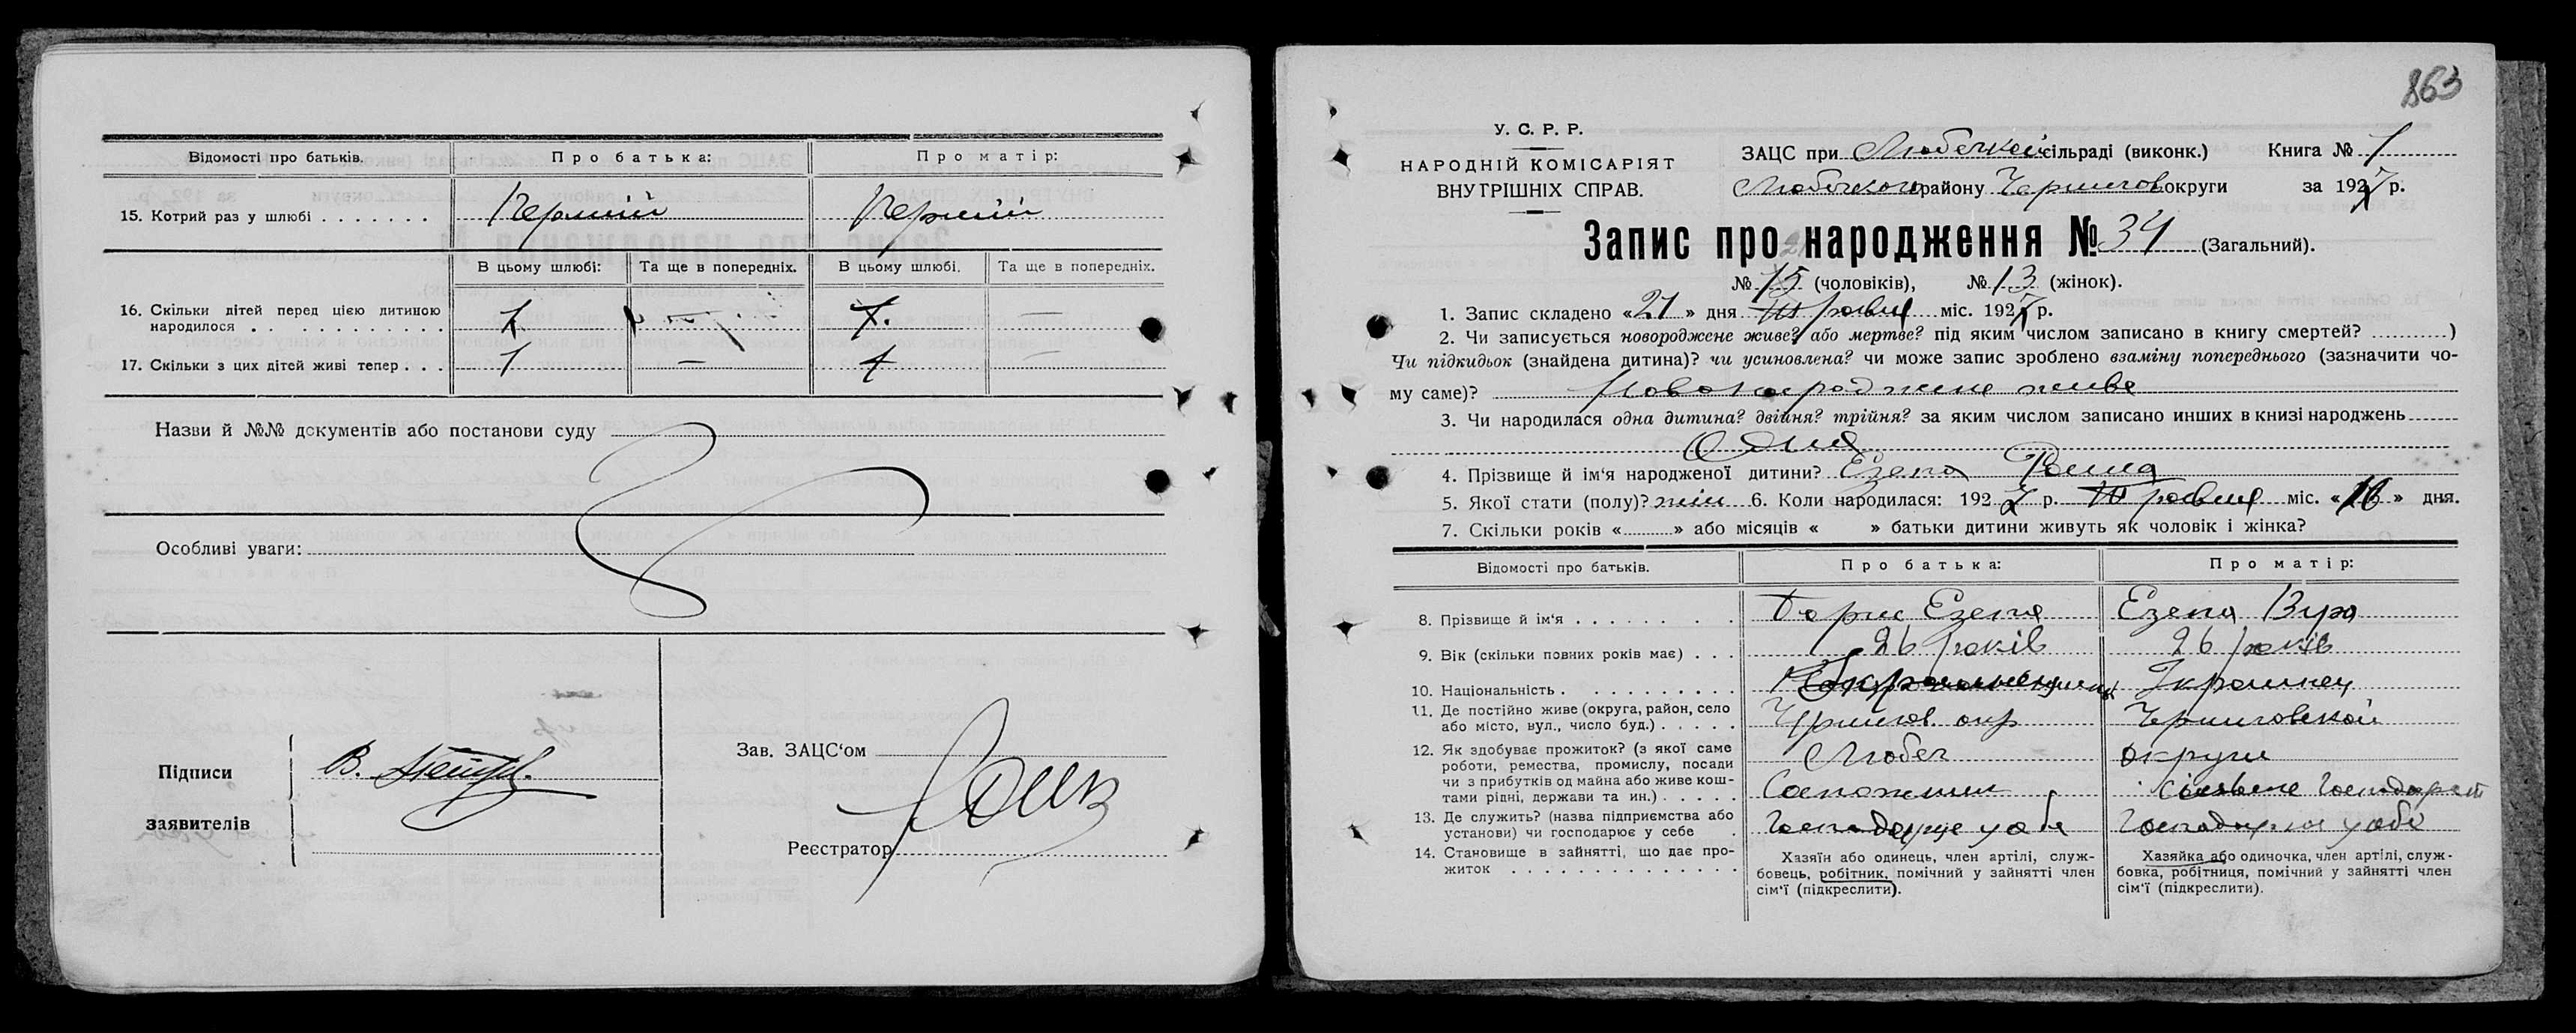 Відомості про батьків.
Про батька:
Про матір:
15. Котрий раз у шлюбі . . . . . . .
Перший
Перший
В цьому шлюбі:
Та ще в попередніх.
В цьому шлюбі.
Та ще в попередніх.
16. Скільки дітей перед цією дитиною
народилося . . . . . . . . . . .
1
1.
—
17. Скільки з цих дітей живі тепер . . .
1
—
1
—
Назви й №№ документів або постанови суду
Особливі уваги:
Підписи
заявителів
В.
Зав. ЗАЦС‘ом
Реєстратор
863
У. С. Р. Р.
НАРОДНІЙ КОМІСАРІЯТ
ВНУТРІШНІХ СПРАВ.
ЗАЦС при Любечкой сільраді (виконк.) Книга № 1
Любечкого району Чернигов округи за 1927 р.
Запис про народження № 34 (Загальний).
№ 15 (чоловіків), № 13 (жінок).
1. Запис складено «21» дня міс. 1927 р.
2. Чи записується новороджене живе? або мертве? під яким числом записано в книгу смертей? ...........)
Чи підкидьок (знайдена дитина)? чи усиновлена? чи може запис зроблено взаміну попереднього (зазначити чо-
му саме)? Новонароджине живе
3. Чи народилася одна дитина? двійня? трійня? за яким числом записано инших в книзі народжень
Одна
4. Прізвище й ім‘я народженої дитини? Езепа Раина
5. Якої стати (полу)? жін 6. Коли народилася: 1927 р. міс. «16» дня.
7. Скільки років «..........» або місяців « » батьки дитини живуть як чоловік і жінка?
Відомості про батьків.
Про батька:
Про матір:
8. Прізвище й ім‘я . . . . . . . .
Борис Езепа
Езепа
9. Вік (скільки повних років має) . . .
26 років
26 років
10. Національність . . . . . . . . . .
Украинец
11. Де постійно живе (округа, район, село
або місто, вул., число буд.) . . . . .
Чернигов. окр
Черниговской
12. Як здобуває прожиток? (з якої саме
роботи, ремества, промислу, посади
чи з прибутків од майна або живе кош-
тами рідні, держави та ин.) . . . . .
Любеч
округи
Сапожник
сільське господарст
13. Де служить? (назва підприємства або
установи) чи господарює у себе .
Господарує у себе
Господарка у себе
14. Становище в зайнятті, що дає про-
житок . . . . . . . . . . . . . .
Хазяїн або одинець, член артілі, служ-
бовець, робітник, помічний у зайнятті член
сім‘ї (підкреслити).
Хазяйка або одиночка, член артілі, служ-
бовка, робітниця, помічний у зайнятті член
сім‘ї (підкреслити).